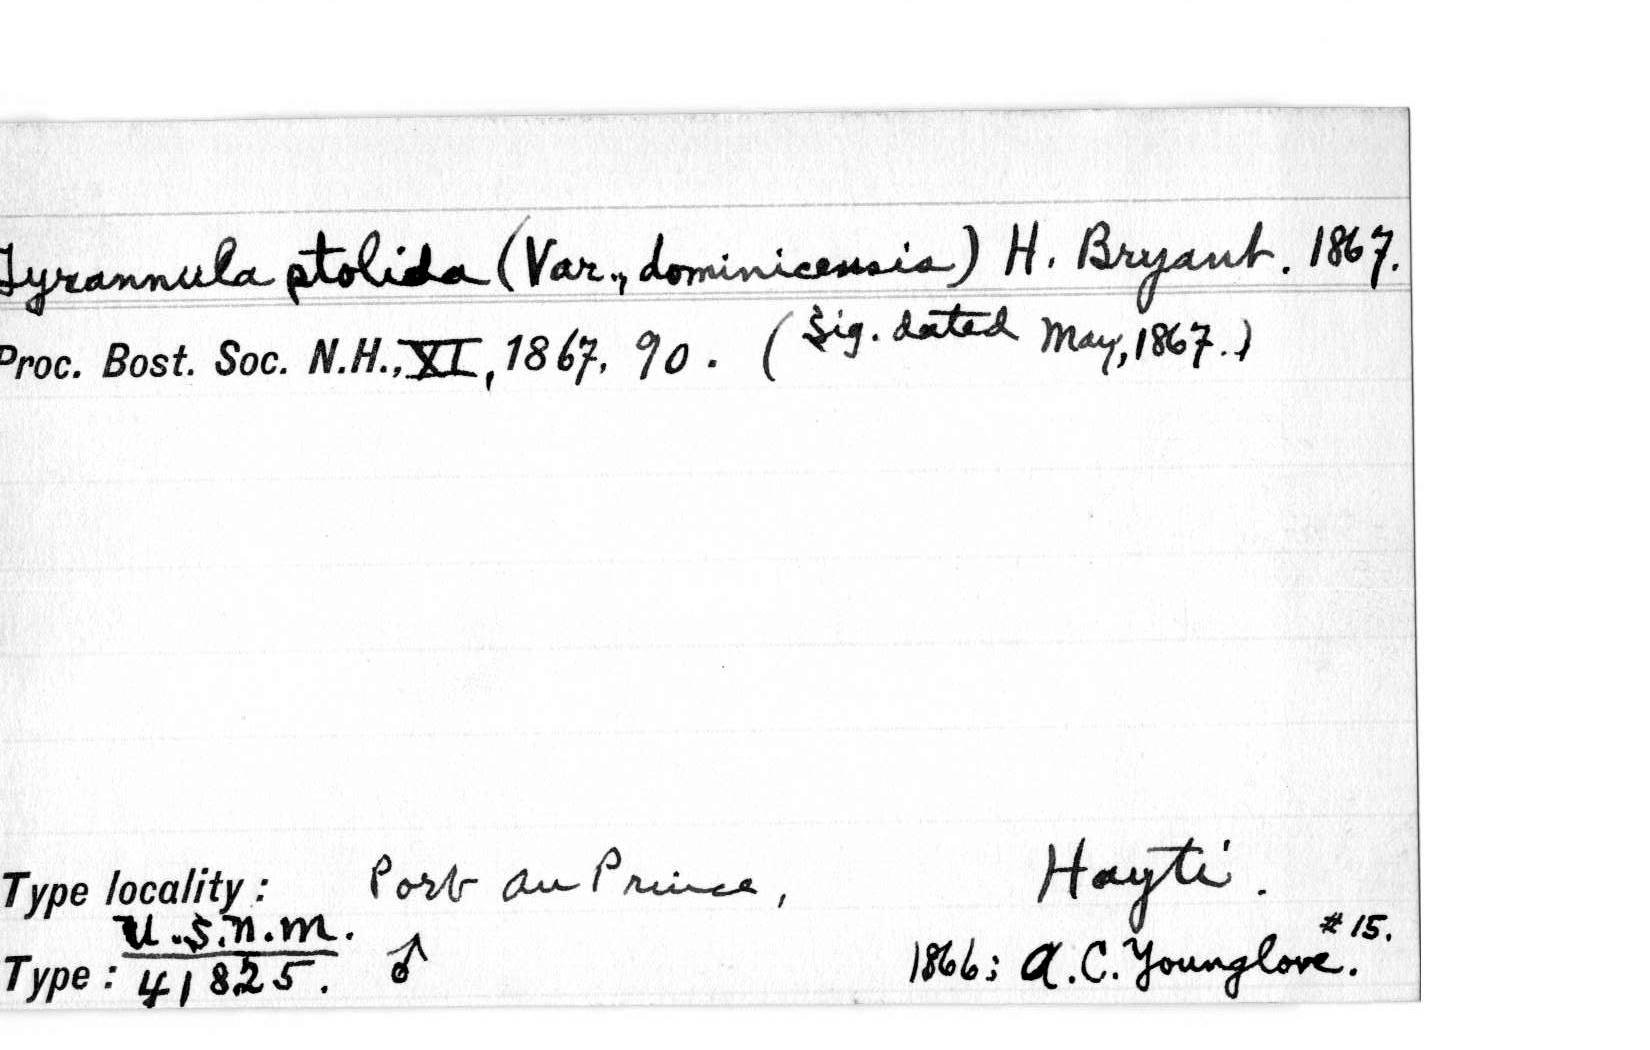 Tyrannula stolida (Var., dominicensis) H. Bryant. 1867.
Proc. Bost. Soc. N.H., XI, 1867, 90. (Sig. dated May, 1867.)
Type locality: Port au Prince, Hayti.
Type: U.S.N.M. 41825. ♂ 1866; A.C. Younglove. #15.